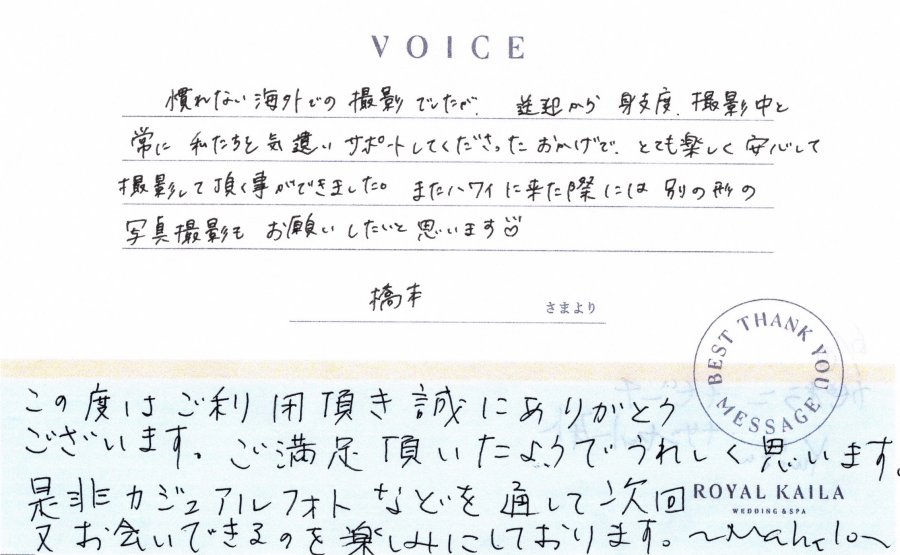 VOICE
慣れない海外での撮影でしたが、送迎から身支度、撮影中と
常に私たちを気遣いサポートしてくださったおかげで、とても楽しく安心して
撮影して頂く事ができました。またハワイに来た際には別の形の
写真撮影もお願いしたいと思います
橋本
さまより
BEST THANK YOU MESSAGE
この度はご利用頂き誠にありがとう
ございます。ご満足頂いたようでうれしく思います。
是非カジュアルフォトなどを通して次回
ROYAL KAILA
WEDDING & SPA
又お会いできるのを楽しみにしております。〜Mahalo〜